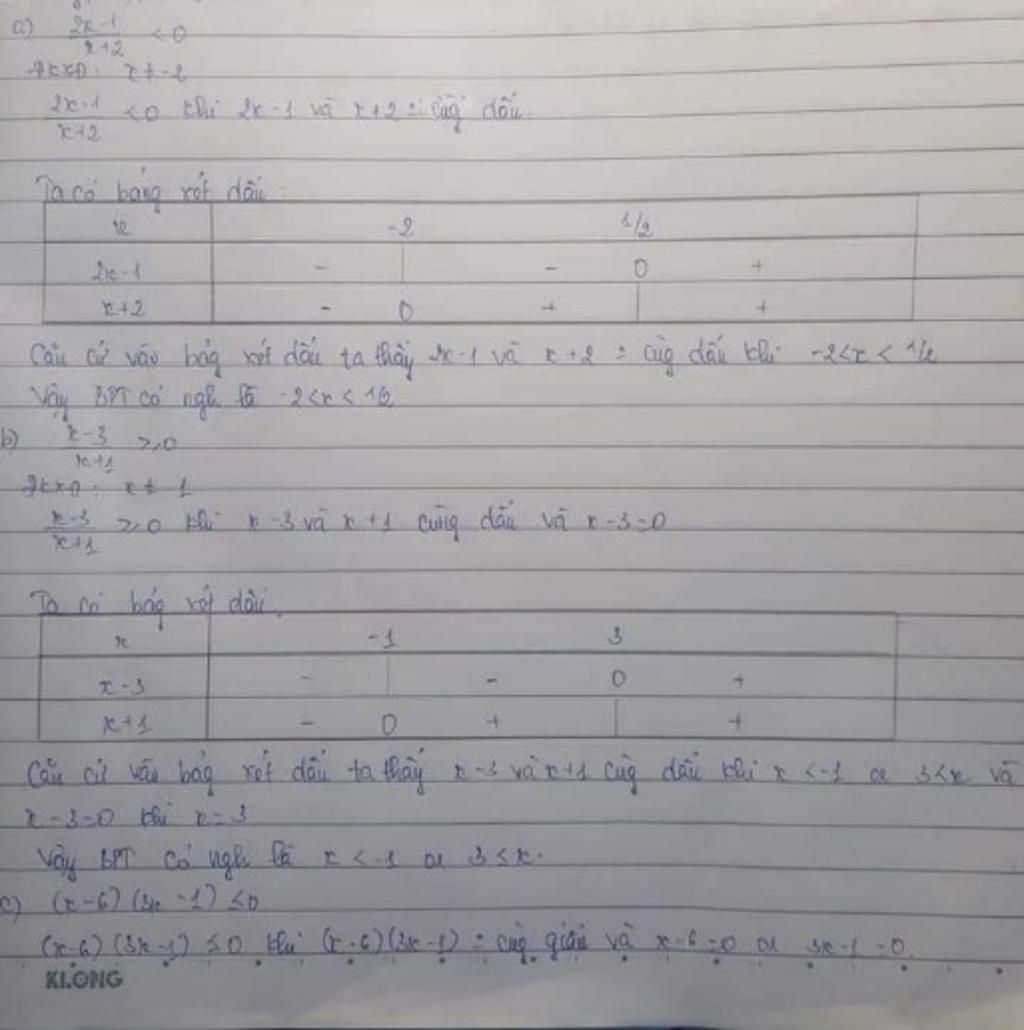 a) (2x-1)/(x+2) < 0
ĐKXĐ: x ≠ -2
(2x-1)/(x+2) < 0 khi 2x-1 và x+2 ≠ cùg dấu
Ta có bảng xét dấu:
x -2 1/2
2x-1 - - 0 +
x+2 - 0 + +
Căn cứ vào bảg xét dấu ta thấy 2x-1 và x+2 ≠ cùg dấu khi -2<x<1/2
Vậy BPT có ngh là -2<x<1/2
b) (x-3)/(x+1) ⩾0
ĐKXĐ: x ≠ -1
(x-3)/(x+1) ⩾0 khi x-3 và x+1 cùng dấu và x-3=0
Ta có bảg xét dấu.
x -1 3
x-3 - - 0 +
x+1 - 0 + +
Căn cứ vào bảg xét dấu ta thấy x-3 và x+1 cùg dấu khi x<-1 or 3<x và
x-3=0 khi x=3
Vậy BPT có ngh là x<-1 or 3≤x.
c) (x-6)(3x-1) ≤0
(x-6)(3x-1) ≤0 khi (x-6)(3x-1) ≠ cùg và x-6=0 or 3x-1=0.
KLONG